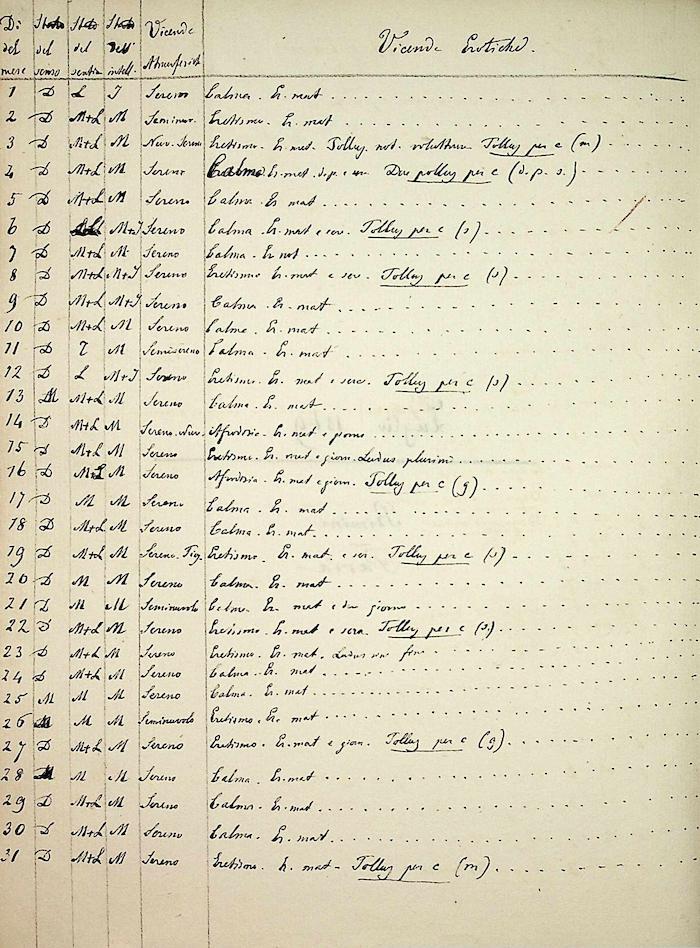 Dì del mese Stato del senso Stato del sentim. Stato dell' intell. Vicende Atmosferich. Vicende Erotiche.
1 D L I Sereno Calma. Er. mat
2 D M+L M Seminuv. Eretismo. Er. mat
3 D M+L M Nuv. Sereno Eretismo. Er. mat. Polluz. not. Polluz per c (m)
4 D M+L M Sereno Calma Er. mat. d.p. e Due polluz per c (d.p. s.)
5 D M+L M Sereno Calma. Er mat
6 D M+I Sereno Calma. Er. mat e ser. Polluz per c (s)
7 D M+L M Sereno Calma. Er not
8 D M+L M+I Sereno Eretismo. Er. mat e ser. Polluz per c (s)
9 D M+L M+I Sereno Calma. Er. mat
10 D M+L M Sereno Calma. Er. mat
11 D T M Semisereno Calma. Er. mat
12 D L M+I Sereno Eretismo. Er. mat e sera. Polluz per c (s)
13 M M+L M Sereno Calma. Er. mat
14 D M+L M Sereno. Nuv. Afrodisia. Er. mat e giorno
15 D M+L M Sereno Eretismo. Er. mat e giorn. Ludus plurimi
16 D M+L M Sereno Afrodisia. Er. mat e giorn. Polluz per c (g)
17 D M M Sereno Calma. Er. mat
18 D M+L M Sereno Calma. Er. mat
19 D M+L M Sereno. Eretismo. Er. mat e ser. Polluz per c (s)
20 D M M Sereno Calma. Er. mat
21 D M M Seminuvolo Calma. Er. mat e giorno
22 D M+L M Sereno Eretismo. Er. mat e sera. Polluz per c (s)
23 D M+L M Sereno Eretismo. Er. mat. Ludus sine fine
24 D M+L M Sereno Calma. Er. mat
25 M M M Sereno Calma. Er. mat
26 M M M Seminuvolo Eretismo. Er. mat
27 D M+L M Sereno Eretismo. Er. mat e giorn. Polluz per c (g)
28 M M M Sereno Calma. Er. mat
29 D M+L M Sereno Calma. Er. mat
30 D M+L M Sereno Calma. Er. mat
31 D M+L M Sereno Eretismo. Er. mat - Polluz per c (m)